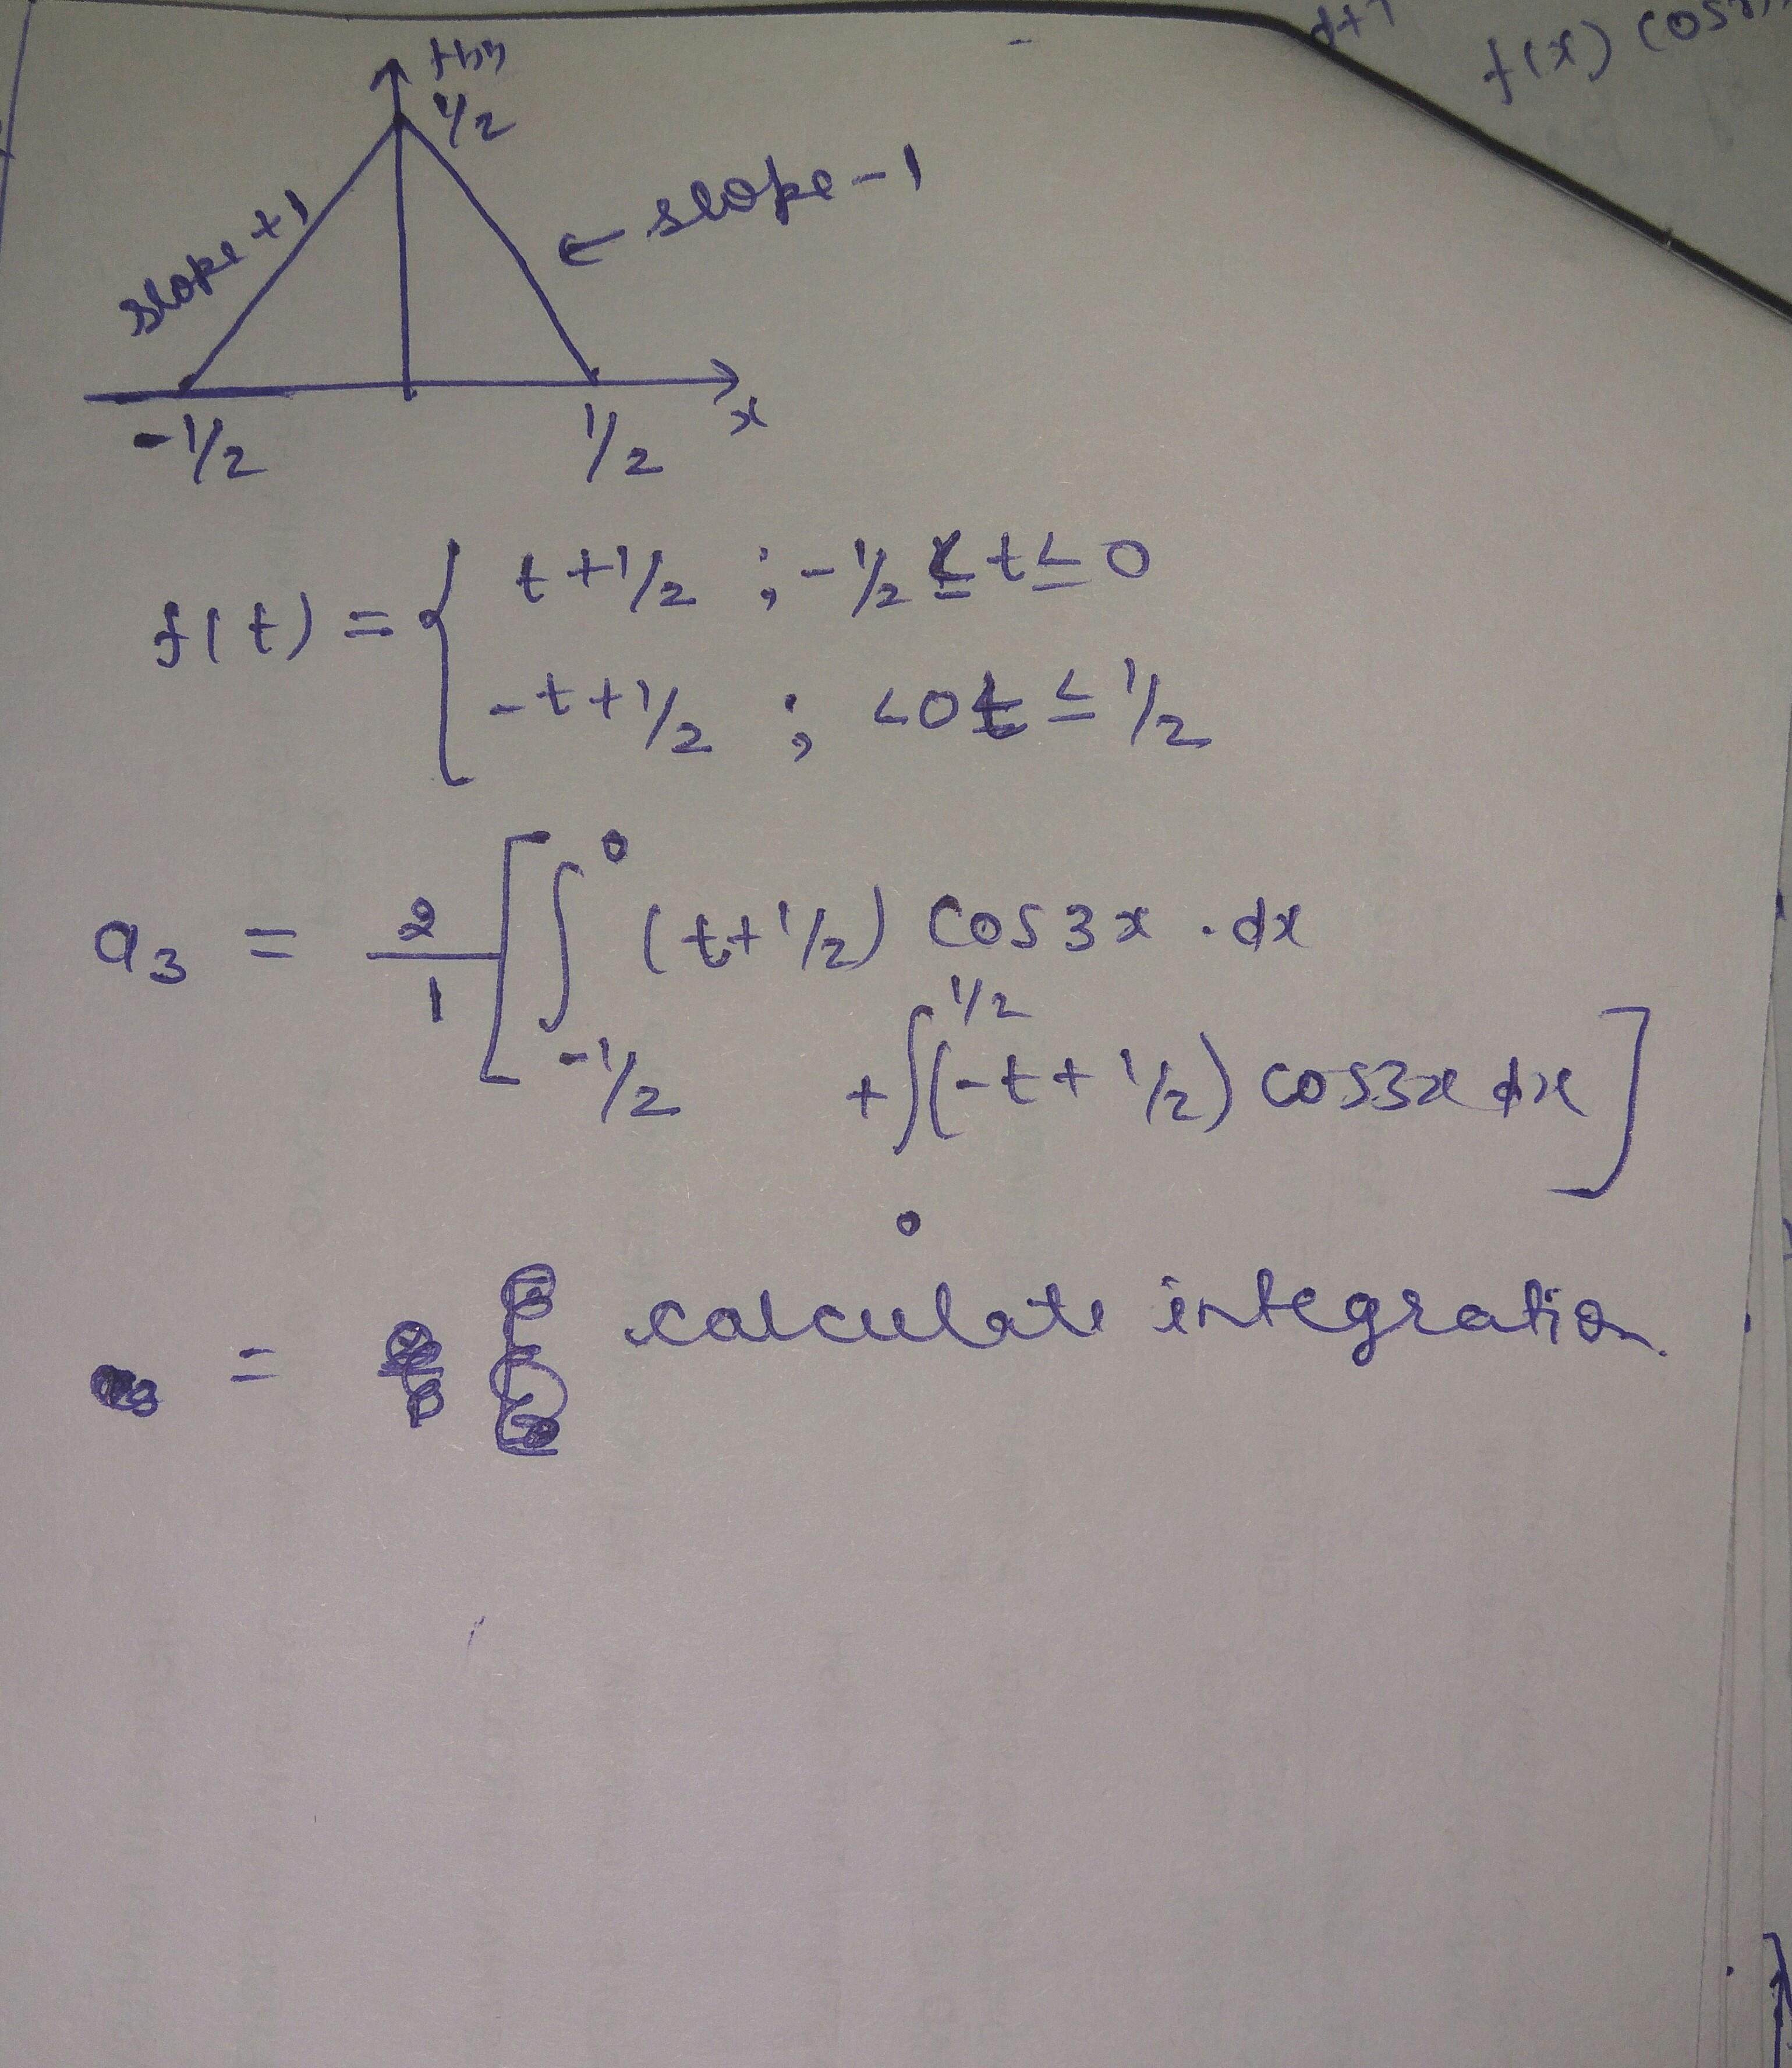 f(x) cos
1/2
slope+1
← slope-1
-1/2 1/2 x
f(t) = { t+1/2 ; -1/2 ≤ t ≤ 0
-t+1/2 ; <0t ≤ 1/2
a3 = 2/1 [ ∫ 0 -1/2 (t+1/2) cos3x . dx
+ ∫ 1/2 0 (-t+1/2) cos3x dx ]
= calculate integration